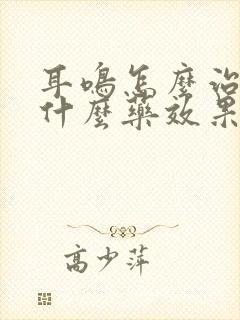 耳鳴怎麼治
什麼藥效果
高少萍